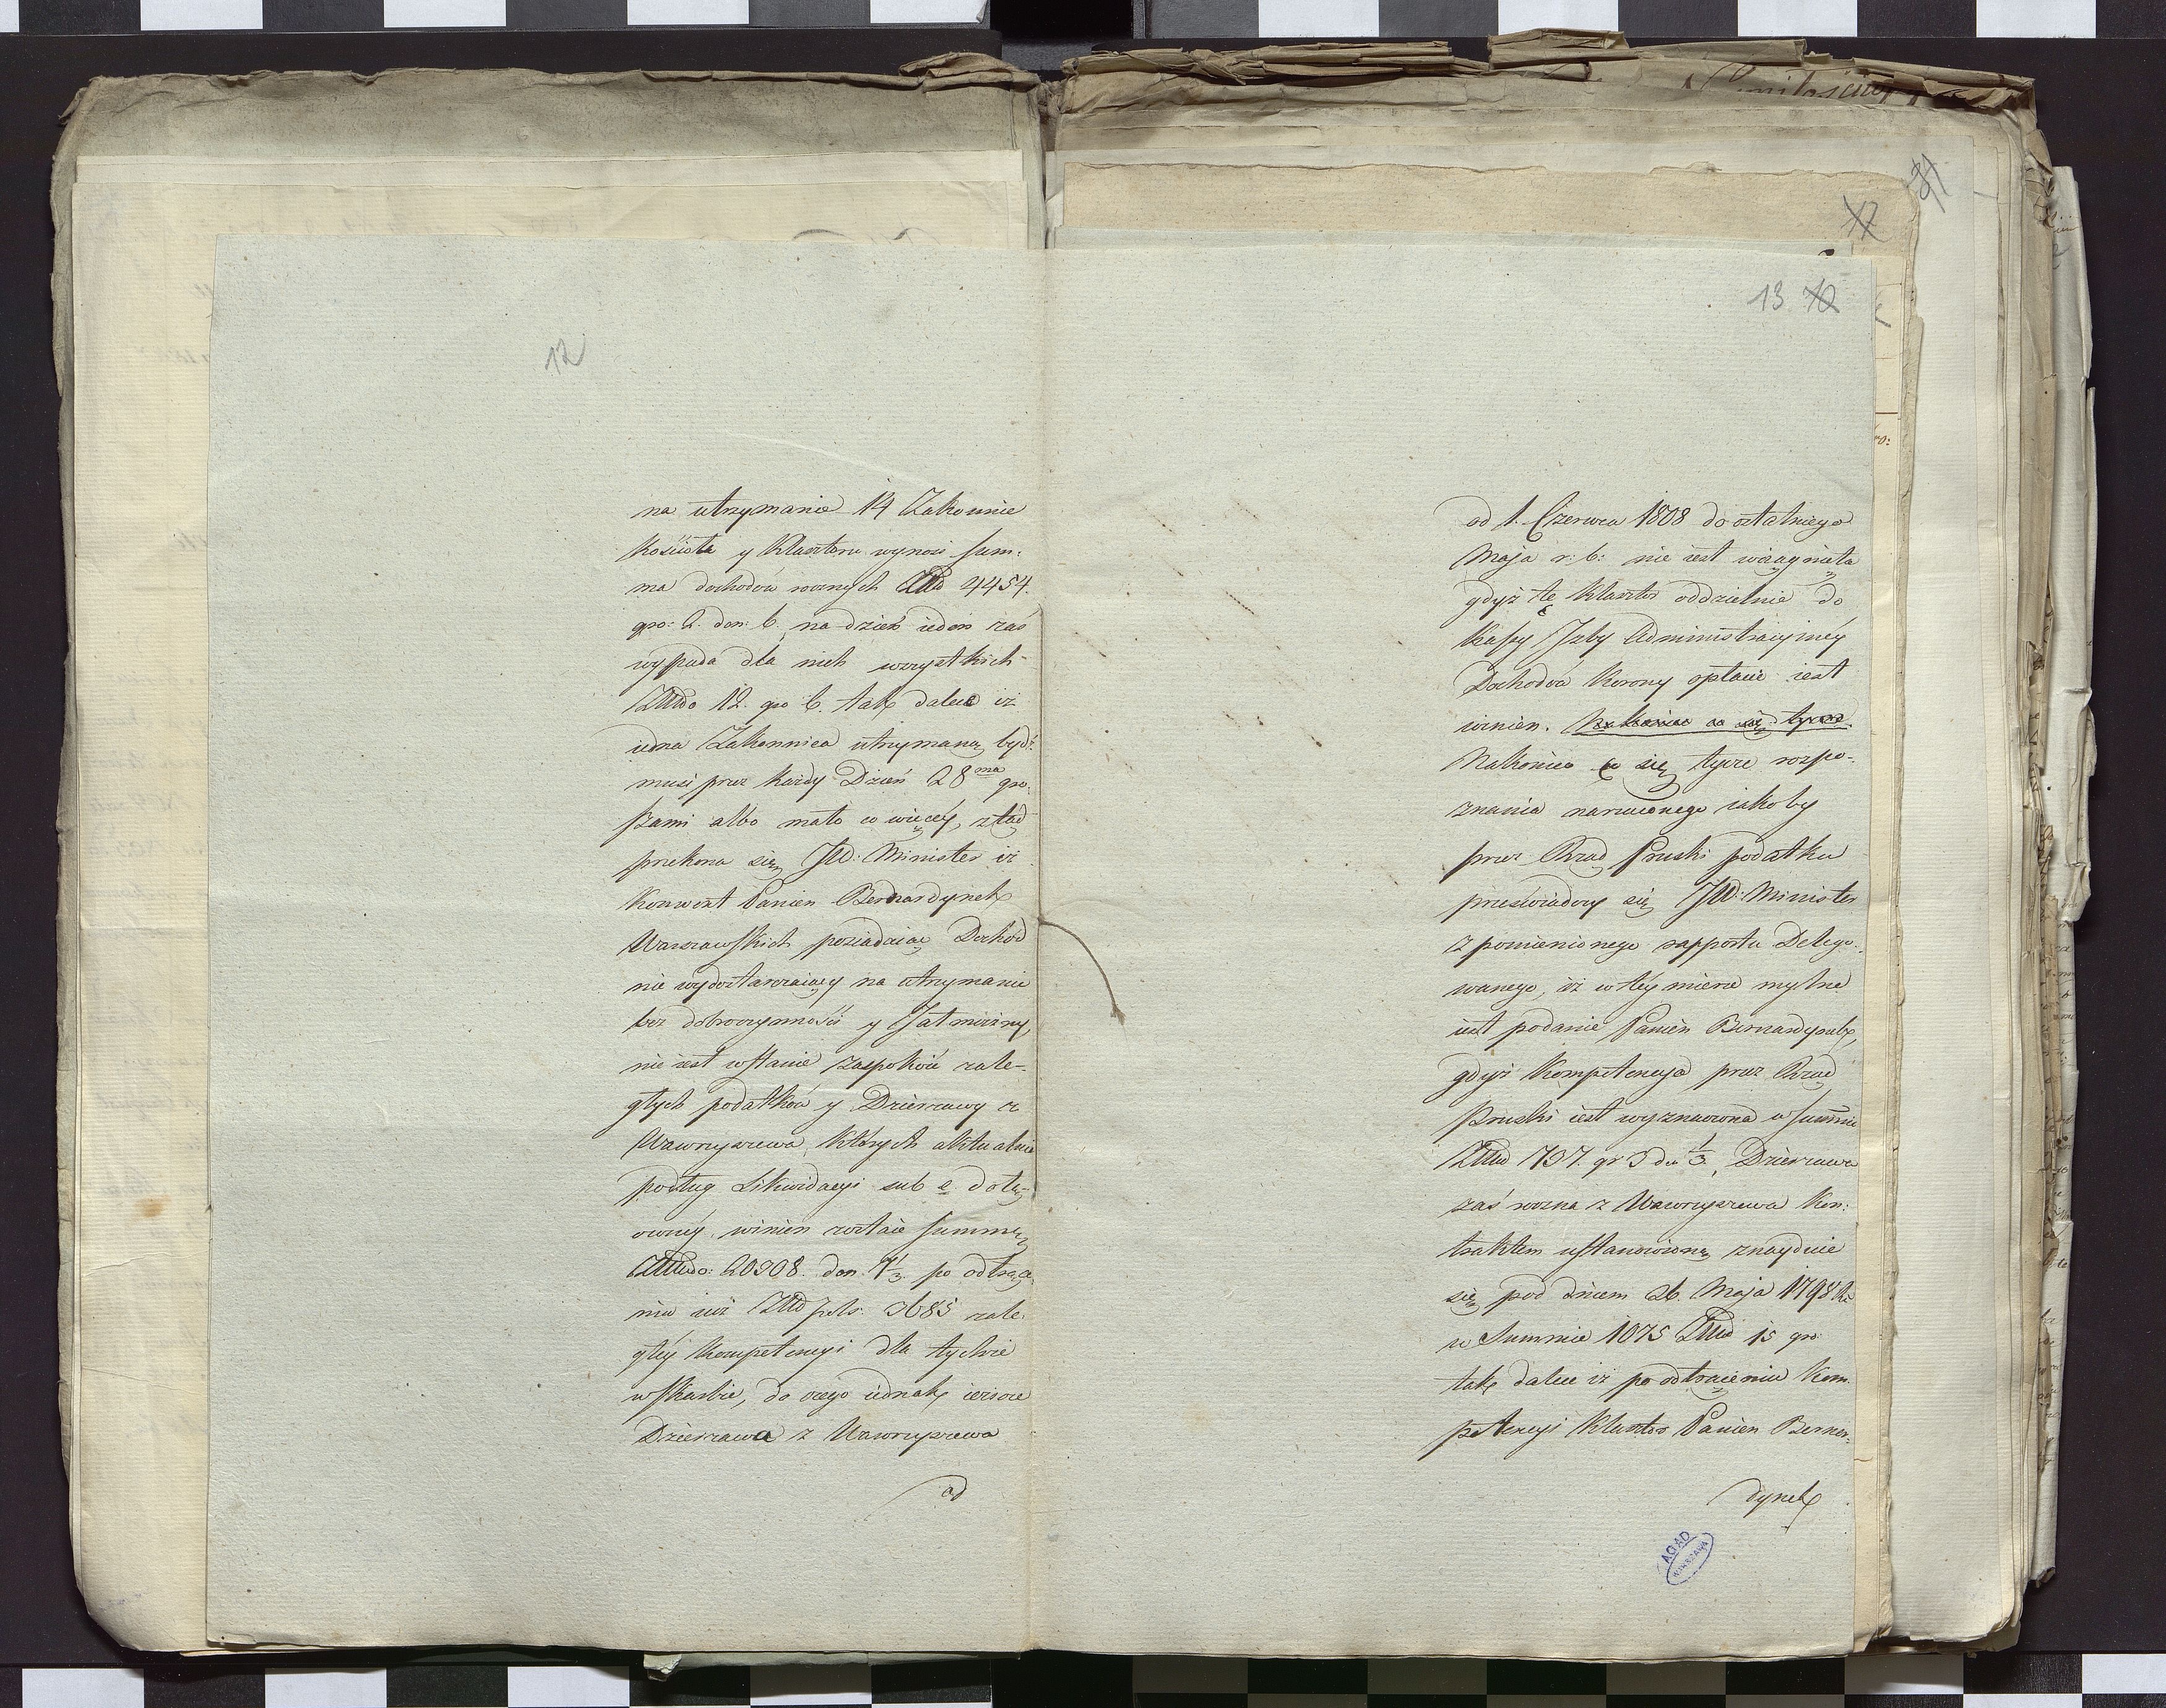 12
na utrzymanie 14 Zakonnic
Kościoła y Klasztoru wynosi sum:
ma dochodów rocznych 4454.
gro: 2. den: 6. na dzień ieden zaś
wypada dla nich wszystkich
12. gro 6. tak dalece iż
iedna Zakonnica utrzymaną być
musi przez każdy Dzień 28ma gro:
szami albo mało co więcéy, ztąd
przekona się JW: Minister iż
Konwent Panien Bernardynek
Warszawskich posiadaiąc Dochód
nie wydostarczaiący na utrzymanie
bez dobroczynności y Jałmużny,
nie iest wstanie zaspokoić zale-
głych podatków y Dzierzawy z
Wawrzyszewa, których aktualnie
podług Likwidacyi sub e dołą-
czonéy winien zostaie summę
20908. den. 7⅓ po odtrące
niu iuż 3685 zale
głéy kompetencyi dla tychże
w skarbie, do czego iednak ieszcze
Dzierzawa z Wawrzyszewa
od
81
12
13 12
od 1. Czerwca 1808 do ostatniego
Maja r: b: nie iest wciągnięta
gdyż tę Klasztor oddzielnie do
Kassy Izby Administracyinéy
Dochodów Korony opłacić iest
winien. Nakoniec co się tycze
Nakoniec co się tycze rozpo-
znania narzuconego iakoby
przez Rząd Pruski podatku
przeświadczy się JW: Minister
z pomienionego rapportu Delego-
wanego, iż w téy mierze mylne
iest podanie Panien Bernardynek,
gdyż Kompetencya przez Rząd
Pruski iest wyznaczona w summie
737. gr 3 de ⅓, Dzierzawa
zaś roczna z Wawrzyszewa Kon:
traktem ustanowioną znayduie
się pod dniem 26. Maja 1798 Ru
w Summie 1075 15 gro:
tak dalece iż po odtrąceniu Kom-
petencyi Klasztor Panien Bernar-
dynek
AGAD
WARSZAWA